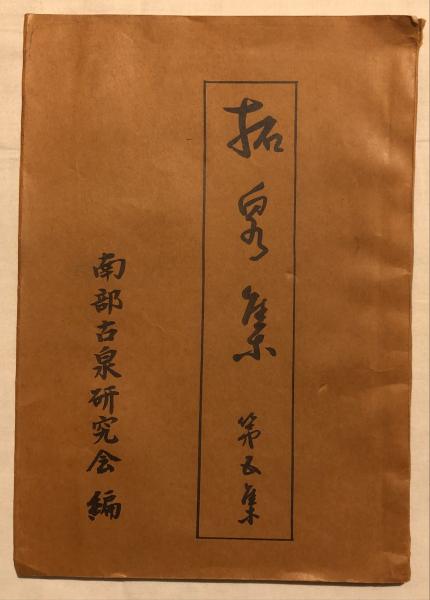 拓泉集 第五集
南部古泉研究会 編